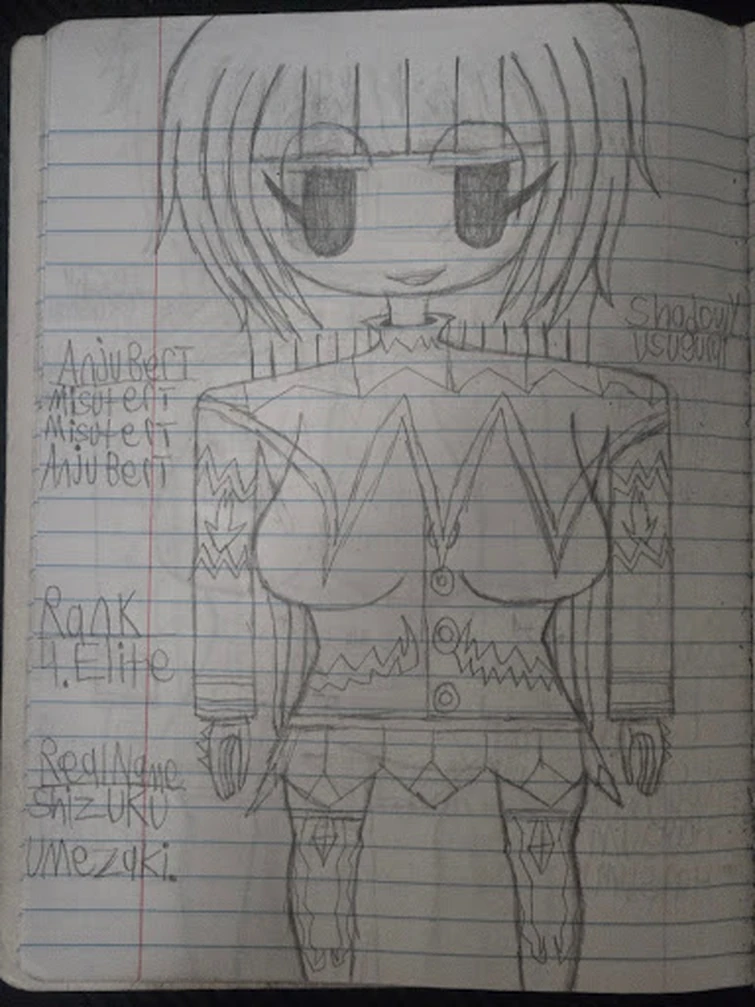 AnjuBerT
MisuterT
MisuterT
AnjuBerT
Rank
4.Elite
RealName
ShizUKU
Umezaki.
Shadow
usugurai